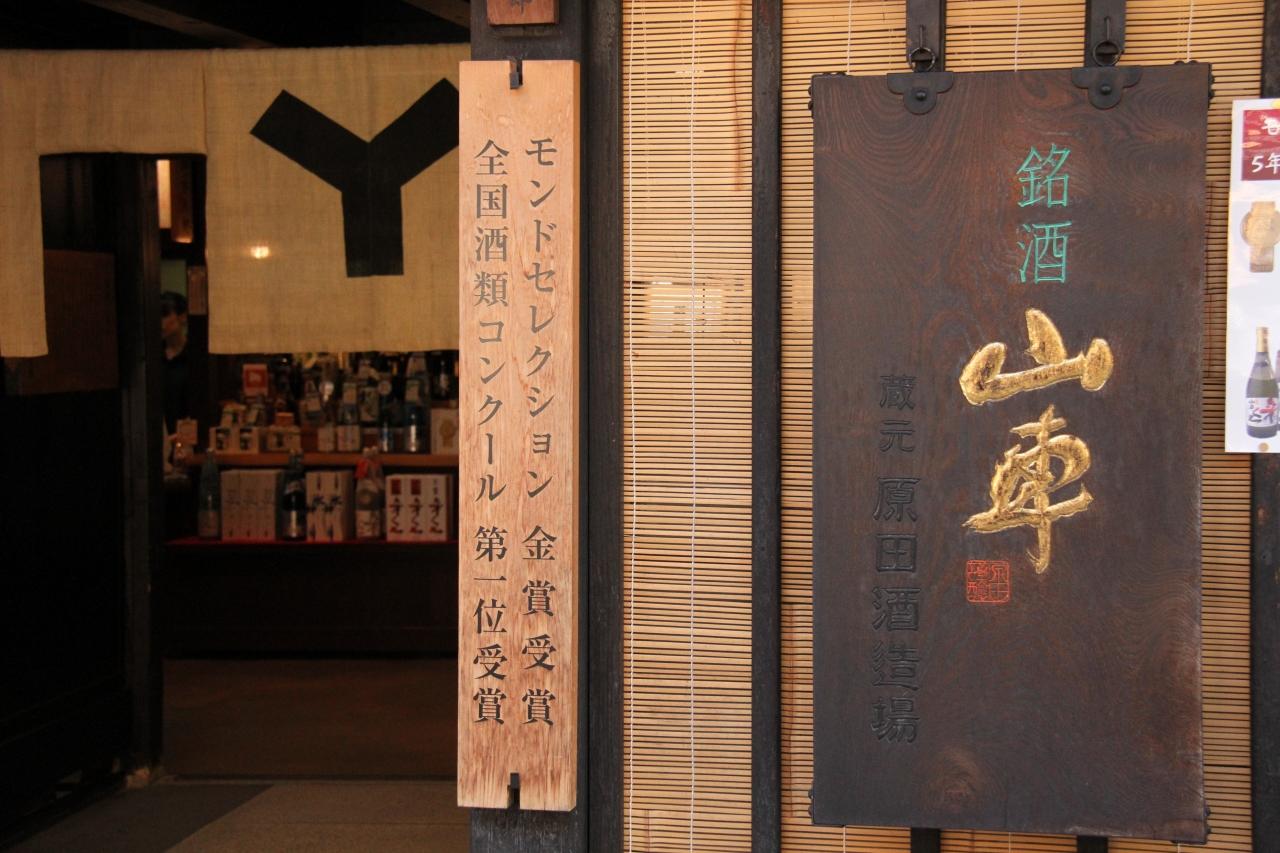 モンドセレクション 金賞受賞
全国酒類コンクール 第一位受賞
銘酒
山車
蔵元 原田酒造場
5年